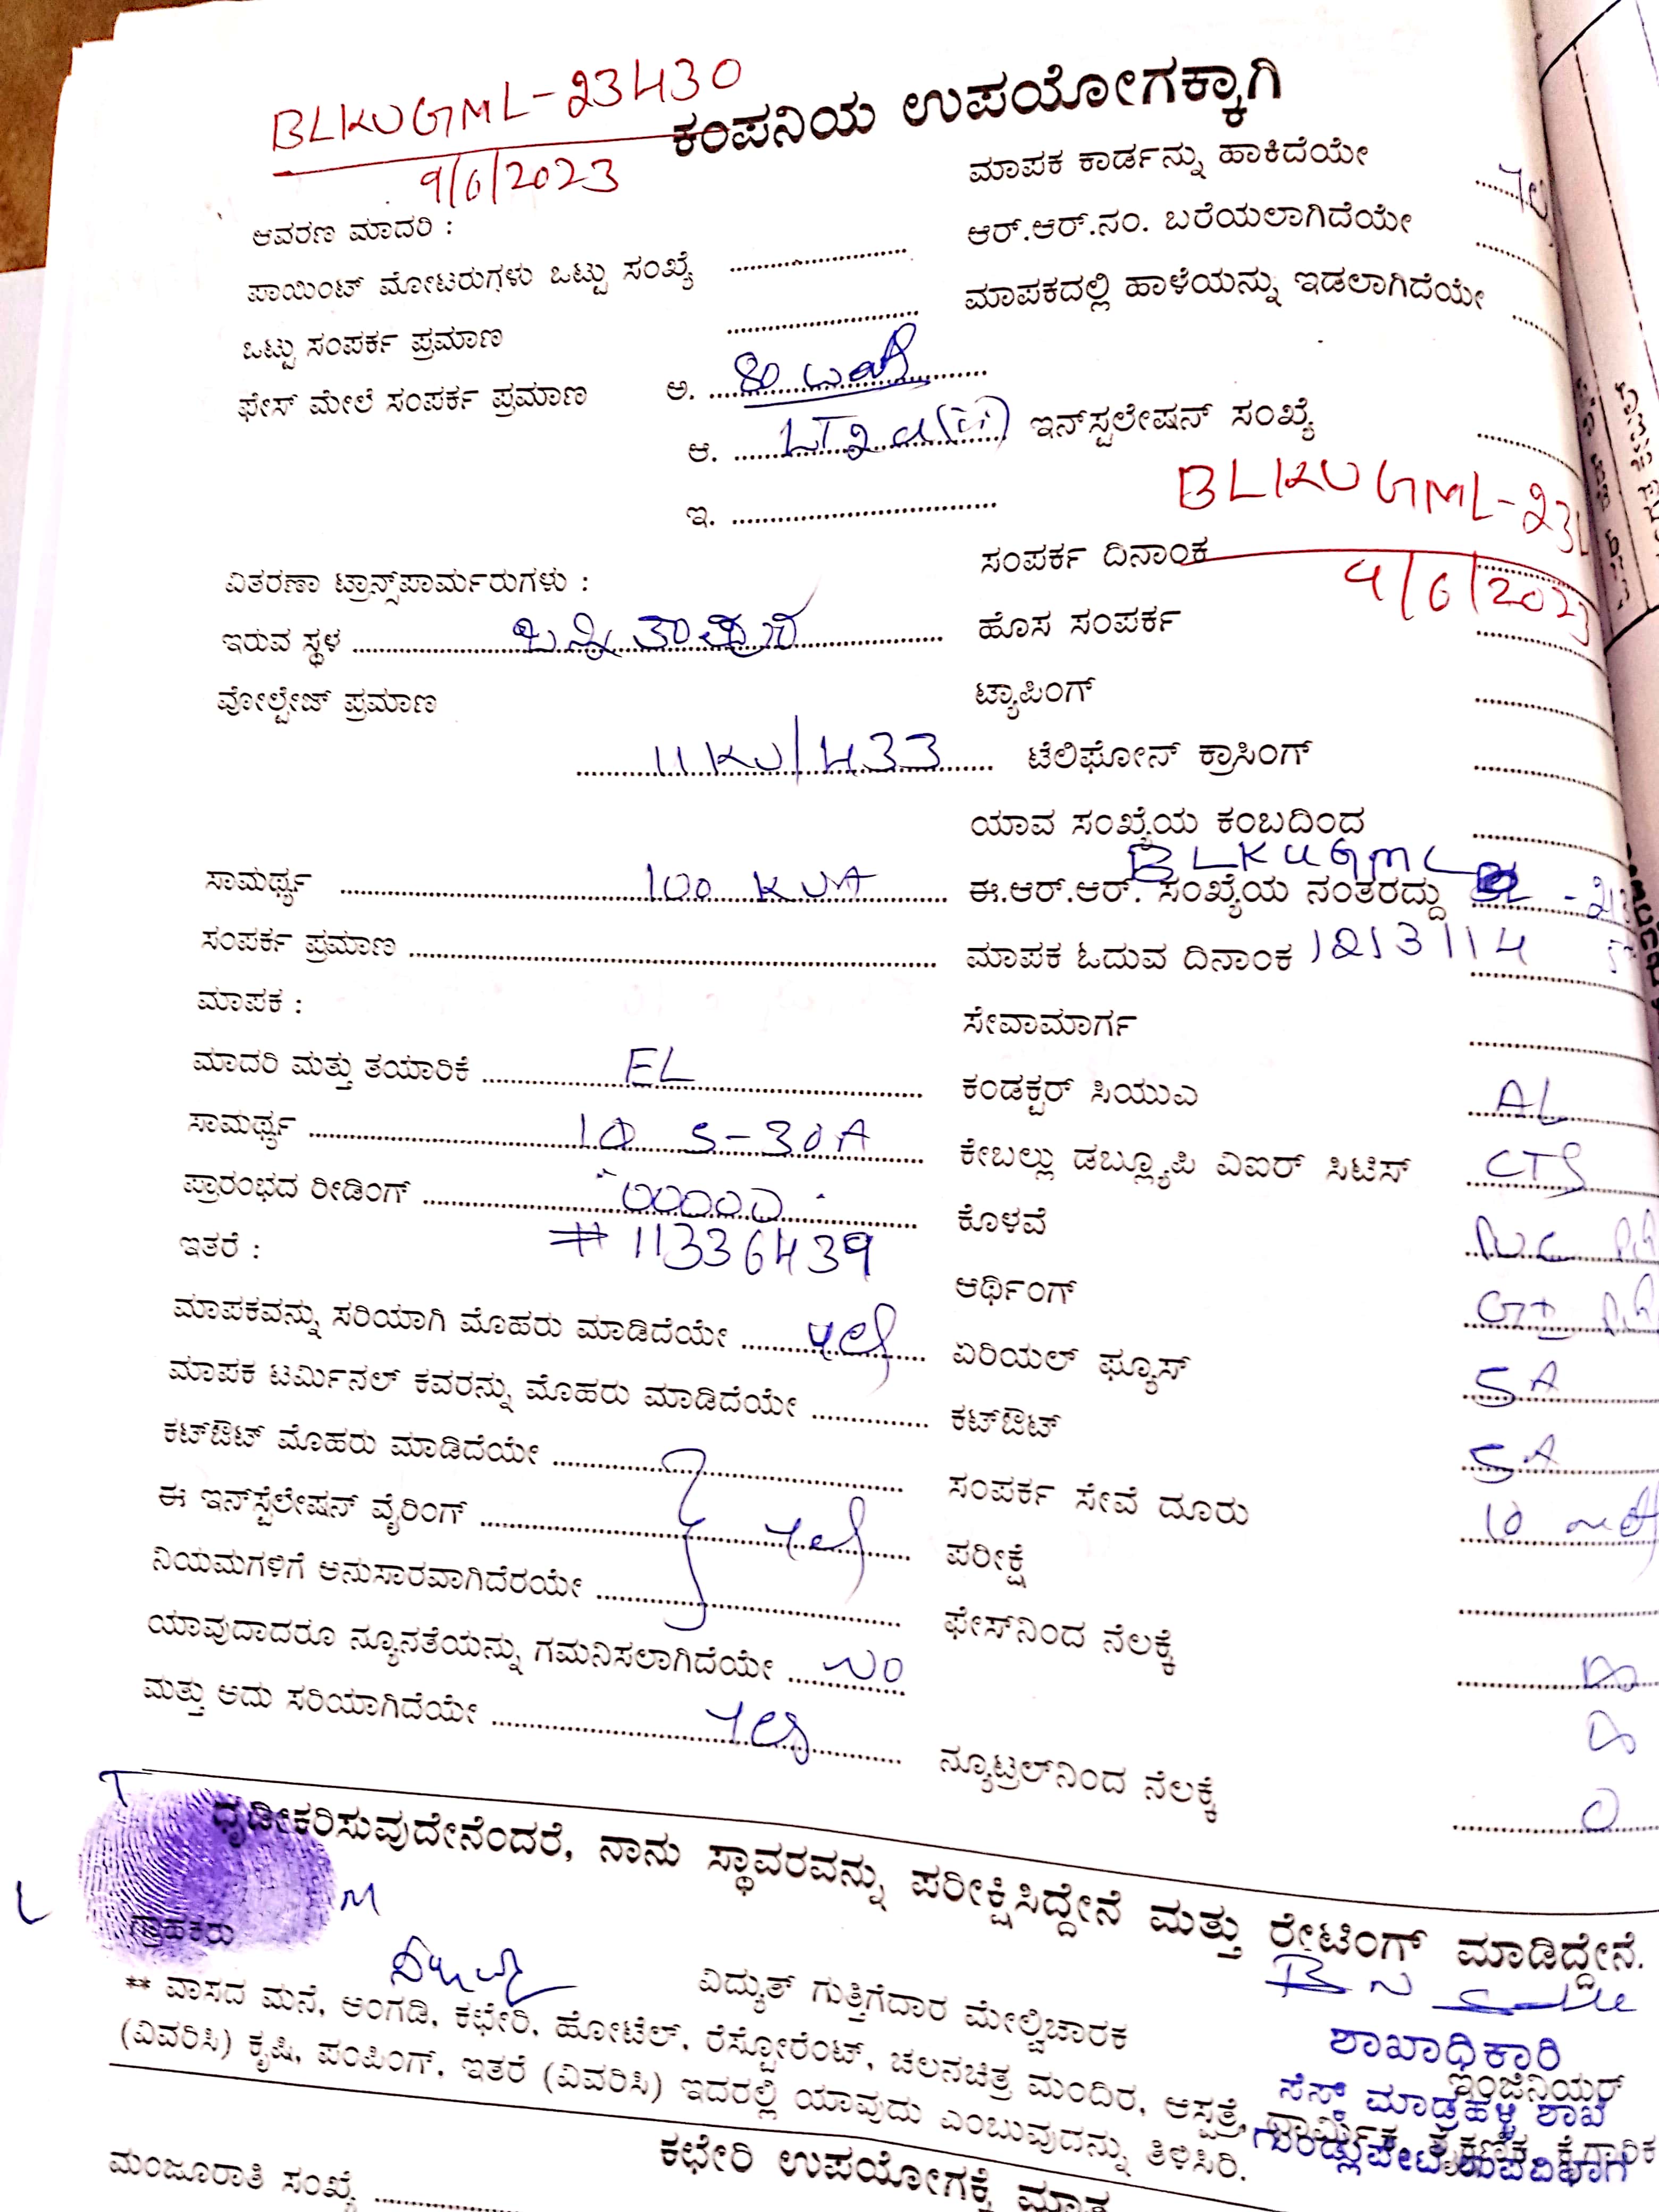 BLKUGML-23430
9/6/2023
ಕಂಪನಿಯ ಉಪಯೋಗಕ್ಕಾಗಿ
ಆವರಣ ಮಾದರಿ :
ಮಾಪಕ ಕಾರ್ಡನ್ನು ಹಾಕಿದೆಯೇ
ಪಾಯಿಂಟ್ ಮೋಟರುಗಳು ಒಟ್ಟು ಸಂಖ್ಯೆ
ಆರ್.ಆರ್.ನಂ. ಬರೆಯಲಾಗಿದೆಯೇ
ಒಟ್ಟು ಸಂಪರ್ಕ ಪ್ರಮಾಣ
ಮಾಪಕದಲ್ಲಿ ಹಾಳೆಯನ್ನು ಇಡಲಾಗಿದೆಯೇ
ಫೇಸ್ ಮೇಲೆ ಸಂಪರ್ಕ ಪ್ರಮಾಣ ಅ.
ಆ. LT2a(ii) ಇನ್‌ಸ್ಟಲೇಷನ್ ಸಂಖ್ಯೆ
BLKUGML-23
ಇ.
ವಿತರಣಾ ಟ್ರಾನ್ಸ್‌ಪಾರ್ಮರುಗಳು :
ಸಂಪರ್ಕ ದಿನಾಂಕ 9/6/2023
ಇರುವ ಸ್ಥಳ
ಹೊಸ ಸಂಪರ್ಕ
ವೋಲ್ಟೇಜ್ ಪ್ರಮಾಣ
ಟ್ಯಾಪಿಂಗ್
11KV/433 ಟೆಲಿಫೋನ್ ಕ್ರಾಸಿಂಗ್
ಯಾವ ಸಂಖ್ಯೆಯ ಕಂಬದಿಂದ
BLKUGML
ಸಾಮರ್ಥ್ಯ 100 KVA ಈ.ಆರ್.ಆರ್. ಸಂಖ್ಯೆಯ ನಂತರದ್ದು
ಸಂಪರ್ಕ ಪ್ರಮಾಣ ಮಾಪಕ ಓದುವ ದಿನಾಂಕ 1213114
ಮಾಪಕ :
ಸೇವಾಮಾರ್ಗ
ಮಾದರಿ ಮತ್ತು ತಯಾರಿಕೆ EL ಕಂಡಕ್ಟರ್ ಸಿಯುಎ AL
ಸಾಮರ್ಥ್ಯ 1Φ 5-30A ಕೇಬಲ್ಲು ಡಬ್ಲ್ಯೂಪಿ ಎಐರ್ ಸಿಟಿಸ್ CTS
ಪ್ರಾರಂಭದ ರೀಡಿಂಗ್ 00000 ಕೊಳವೆ
ಇತರೆ : #11336439 ಆರ್ಥಿಂಗ್ GI
ಮಾಪಕವನ್ನು ಸರಿಯಾಗಿ ಮೊಹರು ಮಾಡಿದೆಯೇ yes ಏರಿಯಲ್ ಫ್ಯೂಸ್ 5A
ಮಾಪಕ ಟರ್ಮಿನಲ್ ಕವರನ್ನು ಮೊಹರು ಮಾಡಿದೆಯೇ ಕಟ್‌ಔಟ್ 5A
ಕಟ್‌ಔಟ್ ಮೊಹರು ಮಾಡಿದೆಯೇ ಸಂಪರ್ಕ ಸೇವೆ ದೂರು 10
ಈ ಇನ್‌ಸ್ಟೆಲೇಷನ್ ವೈರಿಂಗ್ yes ಪರೀಕ್ಷೆ
ನಿಯಮಗಳಿಗೆ ಅನುಸಾರವಾಗಿದೆರಯೇ ಫೇಸ್‌ನಿಂದ ನೆಲಕ್ಕೆ
ಯಾವುದಾದರೂ ನ್ಯೂನತೆಯನ್ನು ಗಮನಿಸಲಾಗಿದೆಯೇ No
ಮತ್ತು ಅದು ಸರಿಯಾಗಿದೆಯೇ yes ನ್ಯೂಟ್ರಲ್‌ನಿಂದ ನೆಲಕ್ಕೆ
ಧೃಡೀಕರಿಸುವುದೇನೆಂದರೆ, ನಾನು ಸ್ಥಾವರವನ್ನು ಪರೀಕ್ಷಿಸಿದ್ದೇನೆ ಮತ್ತು ರೇಟಿಂಗ್ ಮಾಡಿದ್ದೇನೆ.
L T M
ಗ್ರಾಹಕರು
ವಿದ್ಯುತ್ ಗುತ್ತಿಗೆದಾರ ಮೇಲ್ವಿಚಾರಕ
ಶಾಖಾಧಿಕಾರಿ
ಇಂಜಿನಿಯರ್
ಸೆಸ್ಕ್ ಮಾಡ್ರಹಳ್ಳಿ ಶಾಖೆ
ಗುಂಡ್ಲುಪೇಟೆ ಉಪವಿಭಾಗ
** ವಾಸದ ಮನೆ, ಅಂಗಡಿ, ಕಛೇರಿ, ಹೋಟೆಲ್, ರೆಸ್ಟೋರೆಂಟ್, ಚಲನಚಿತ್ರ ಮಂದಿರ, ಆಸ್ಪತ್ರೆ, ಧಾರ್ಮಿಕ, ಶೈಕ್ಷಣಿಕ, ಕೈಗಾರಿಕ
(ವಿವರಿಸಿ) ಕೃಷಿ, ಪಂಪಿಂಗ್, ಇತರೆ (ವಿವರಿಸಿ) ಇದರಲ್ಲಿ ಯಾವುದು ಎಂಬುವುದನ್ನು ತಿಳಿಸಿರಿ.
ಕಛೇರಿ ಉಪಯೋಗಕ್ಕೆ ಮಾತ್ರ
ಮಂಜೂರಾತಿ ಸಂಖ್ಯೆ